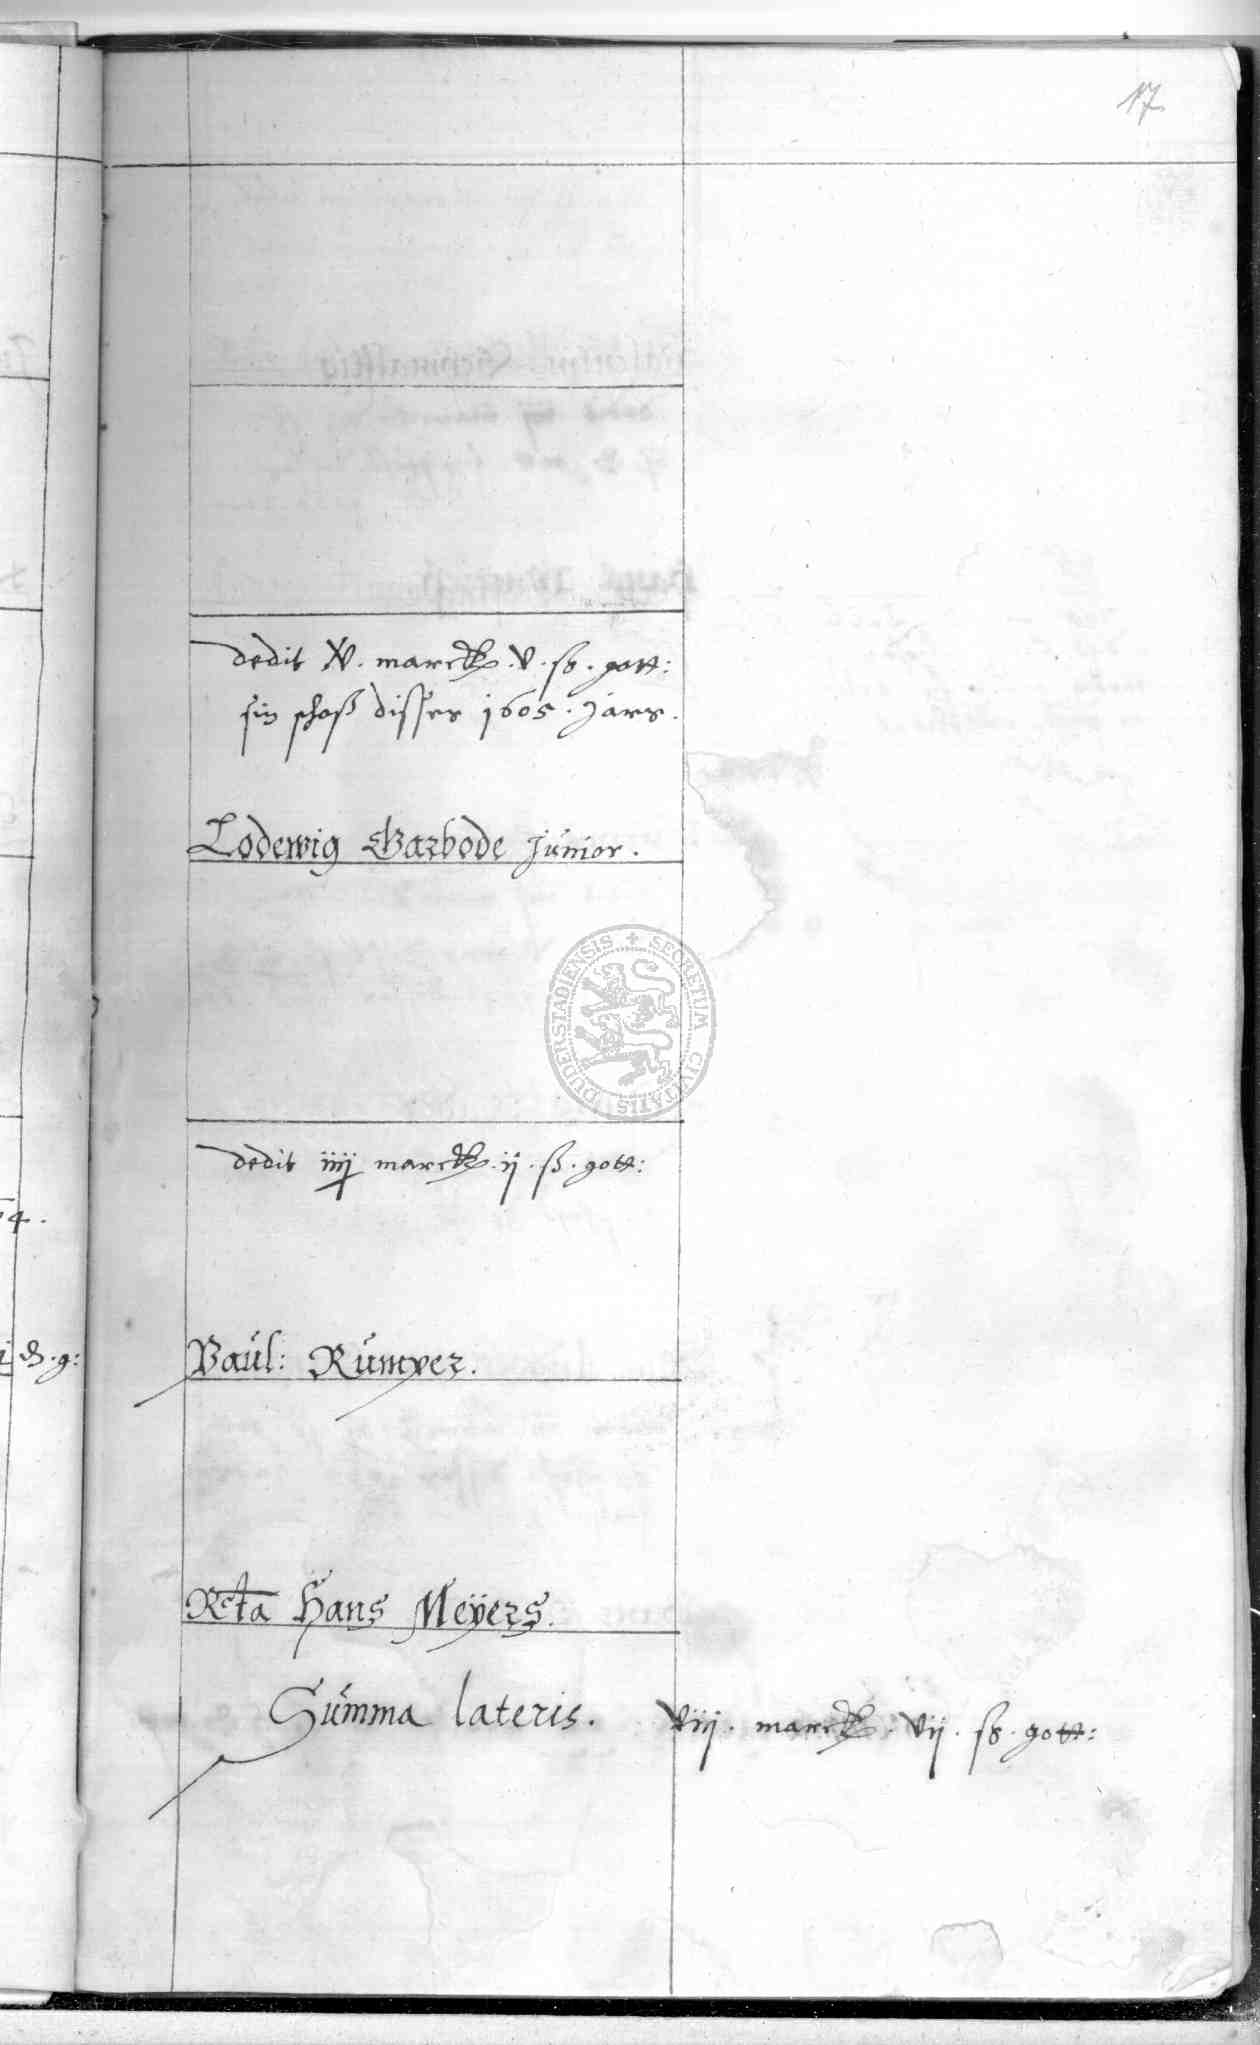 17
dedit XV. marck. V. ß. gott:
sin schoß disses 1605. Jars.
Lodewig Barbode Junior.
SECRETUM CIVITATIS DUDERSTADIENSIS
dedit iiij marck. ij. ß. gott:
4.
Paul: Rumper.
g:
Rcta Hans Meÿers.
Summa lateris. Viij. marck. Vij. ß. gott: